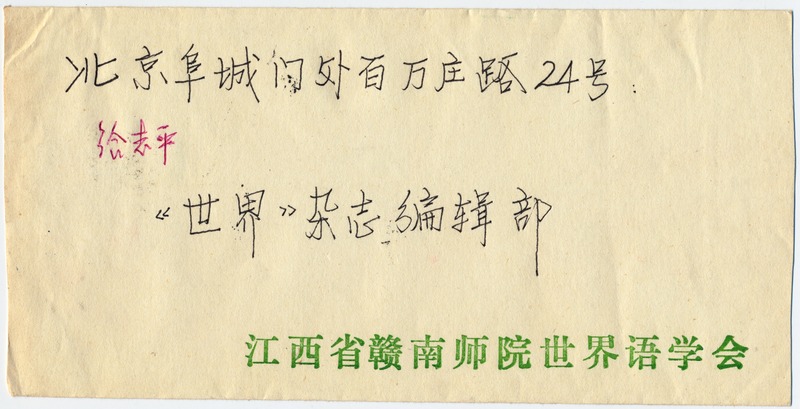 北京阜城门外百万庄路24号:
给志平
《世界》杂志编辑部
江西省赣南师院世界语学会